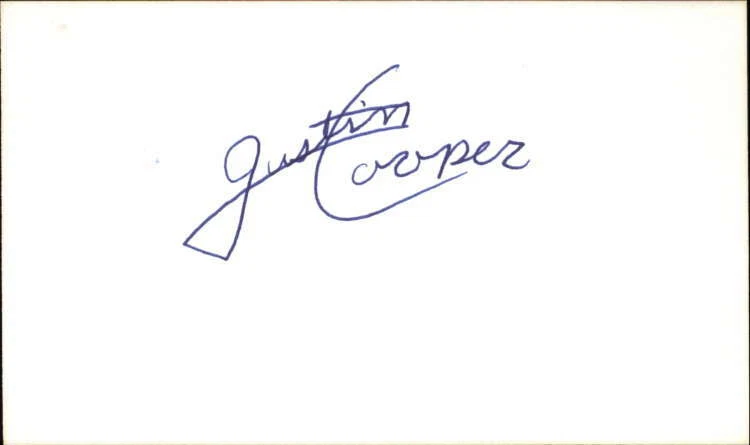 Justin
Cooper